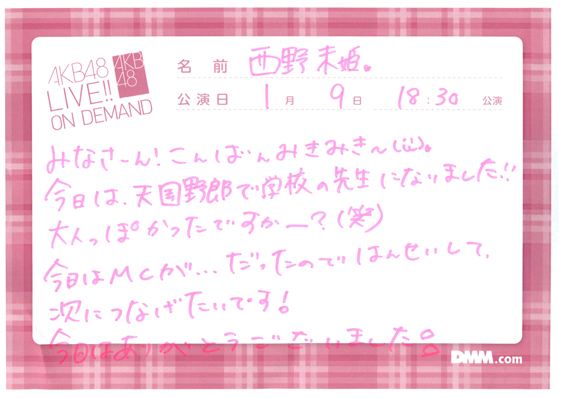 AKB48
LIVE!!
ON DEMAND
AKB
48
名 前 西野未姫。
公演日 1月 9日 18:30 公演
みなさーん!こんばんみきみき〜(ii)。
今日は、天国野郎で学校の先生になりました!!
大人っぽかったですかー?(笑)
今日はMCが...だったのではんせいして、
次につなげたいです!
今日はありがとうございました!!
DMM.com